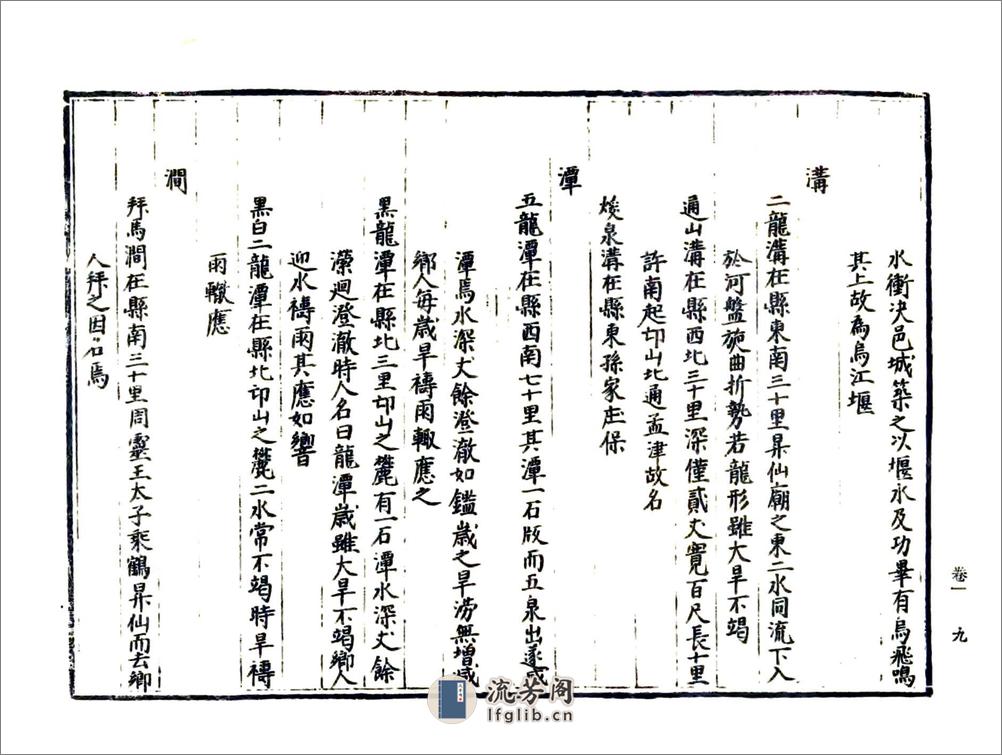 水衝決邑城築之以堰水及功畢有烏飛鳴
其上故為烏江堰
溝
二龍溝在縣東南三十里昇仙廟之東二水同流下入
於河盤旋曲折勢若龍形雖大旱不竭
通山溝在縣西北三十里深僅貳丈寬百尺長十里
許南起邙山北通孟津故名
焌泉溝在縣東孫家庄保
潭
五龍潭在縣西南七十里其潭一石版而五泉出遂成
潭焉水深丈餘澄澈如鑑歲之旱澇無增減
鄉人每歲旱禱雨輒應之
黑龍潭在縣北三里邙山之麓有一石潭水深丈餘
濴迴澄澈時人名曰龍潭歲雖大旱不竭鄉人
迎水禱雨其應如響
黑白二龍潭在縣北邙山之麓二水常不竭時旱禱
雨輙應
澗
拜馬澗在縣南三十里周靈王太子乘鶴昇仙而去鄉
人拜之因名焉
卷一 九
流芳阁
lfglib.cn